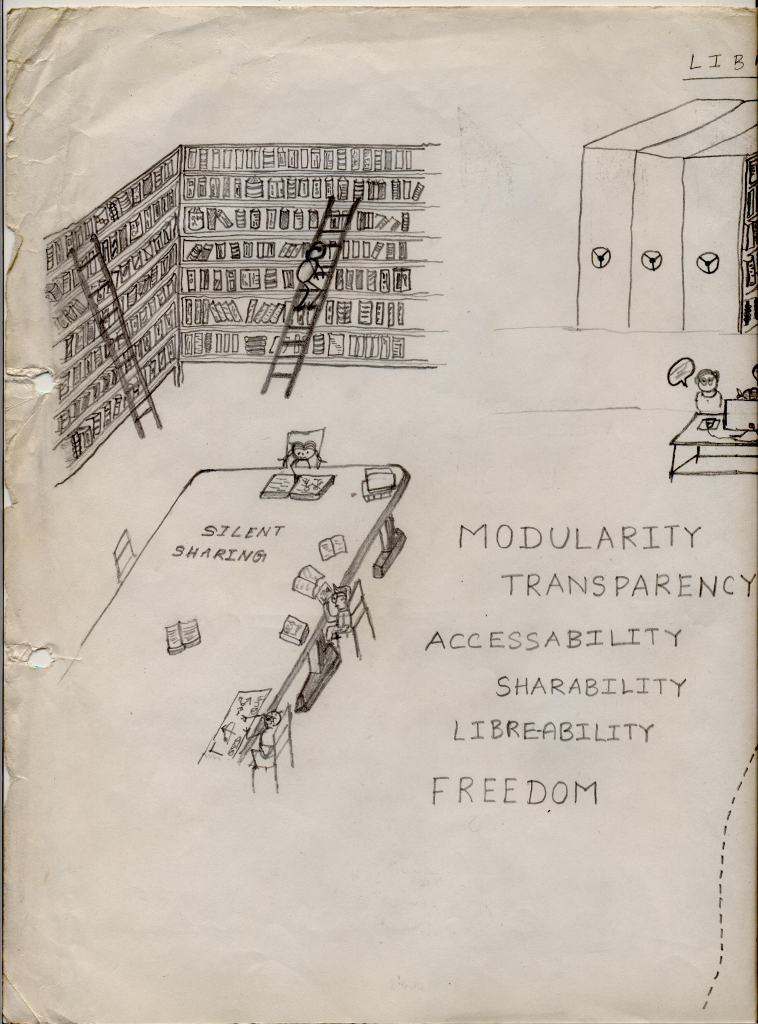 LIB
SILENT
SHARING
MODULARITY
TRANSPARENCY
ACCESSABILITY
SHARABILITY
LIBREABILITY
FREEDOM